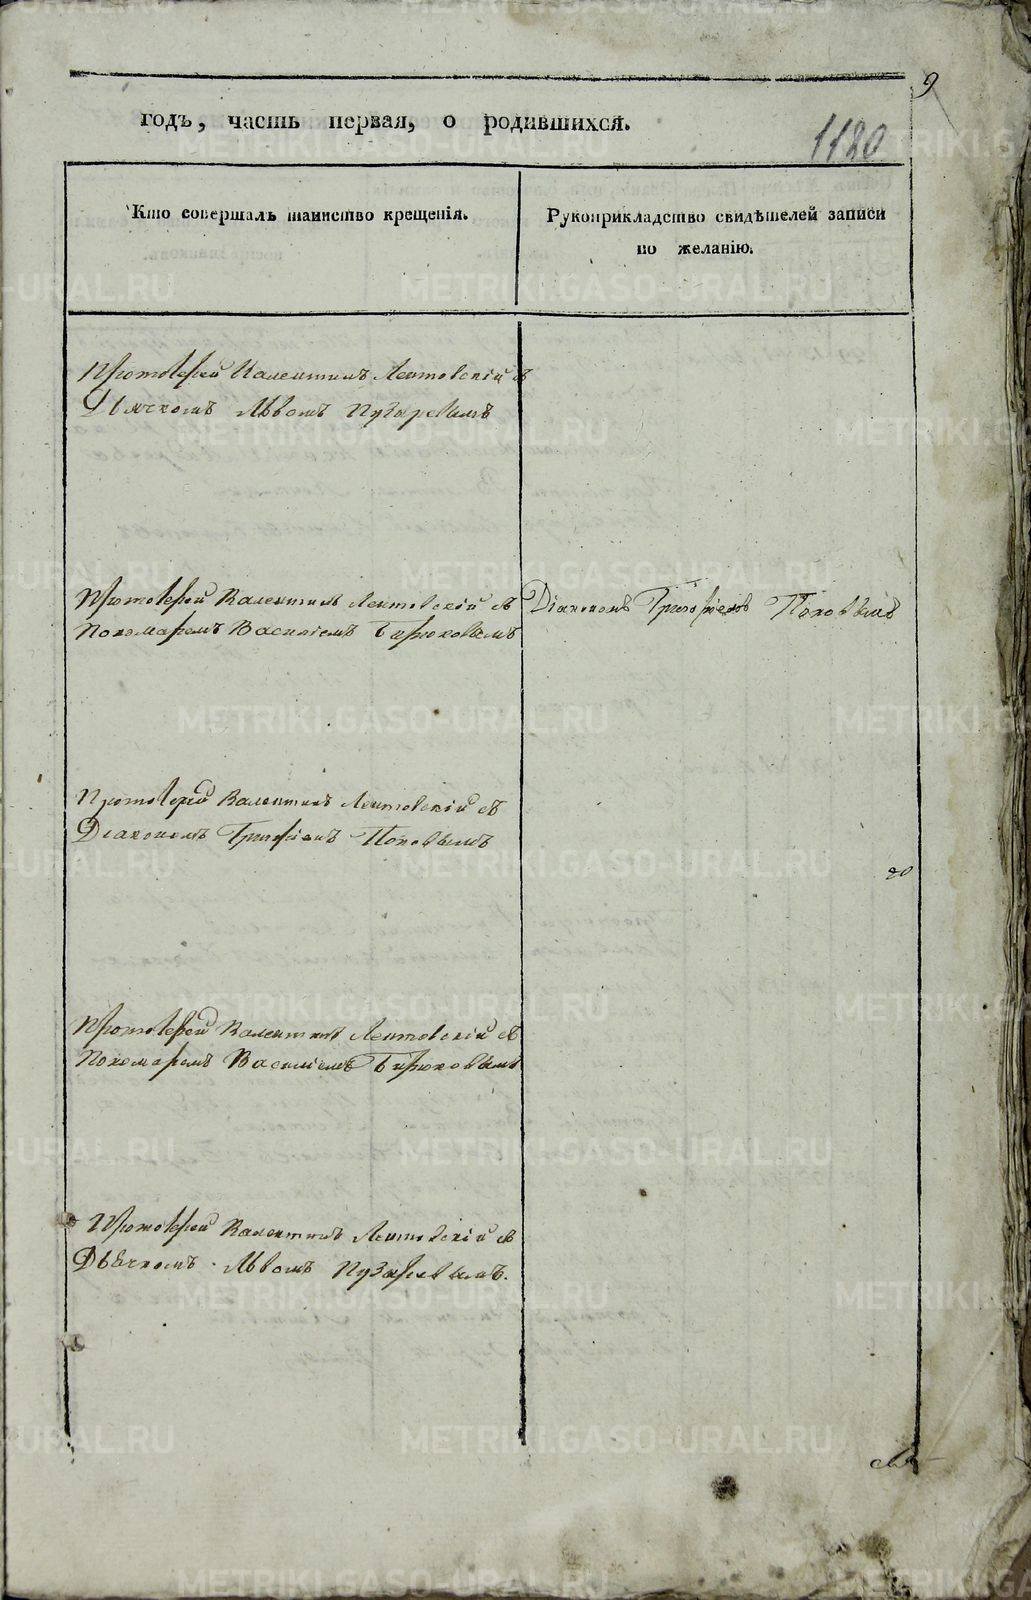 9
годъ, часть первая, о родившихся.
1180
Кто совершалъ таинство крещенія.
Рукоприкладство свидѣтелей записи
по желанію.
Протоіерей Валентинъ Лентовскій съ
Дьячкомъ Львомъ Пузыревымъ
Протоіерей Валентинъ Лентовскій съ Діакономъ Григоріемъ Поповымъ
Пономаремъ Василіемъ Бирюковымъ
Протоіерей Валентинъ Лентовскій съ
Діакономъ Григоріемъ Поповымъ
Протоіерей Валентинъ Лентовскій съ
Пономаремъ Василіемъ Бирюковымъ
Протоіерей Валентинъ Лентовскій съ
Дьячкомъ Львомъ Пузыревымъ.
METRIKI.GASO-URAL.RU